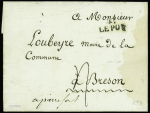 A Monsieur
LE PUY
Loubeyre maire de la
Commune
à Breson